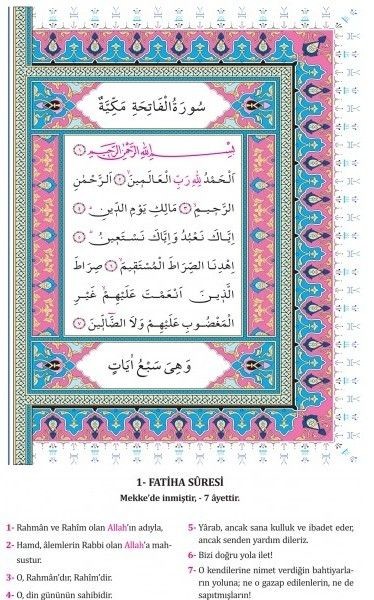 سُورَةُ الْفَاتِحَةِ مَكِّيَّةٌ
بِسْمِ اللّٰهِ الرَّحْمٰنِ الرَّحِيمِ ﴿١﴾
اَلْحَمْدُ لِلّٰهِ رَبِّ الْعَالَمِينَۙ ﴿٢﴾ اَلرَّحْمٰنِ
الرَّحِيمِۙ ﴿٣﴾ مَالِكِ يَوْمِ الدِّينِۜ ﴿٤﴾
اِيَّاكَ نَعْبُدُ وَاِيَّاكَ نَسْتَعِينُۜ ﴿٥﴾
اِهْدِنَا الصِّرَاطَ الْمُسْتَقِيمَۙ ﴿٦﴾ صِرَاطَ
الَّذِينَ اَنْعَمْتَ عَلَيْهِمْۙ غَيْرِ
الْمَغْضُوبِ عَلَيْهِمْ وَلَا الضَّٓالِّينَ ﴿٧﴾
وَهِيَ سَبْعُ اٰيَاتٍ
1- FATİHA SÛRESİ
Mekke'de inmiştir, - 7 âyettir.
1- Rahmân ve Rahîm olan Allah'ın adıyla,
2- Hamd, âlemlerin Rabbi olan Allah'a mah-
sustur.
3- O, Rahmân'dır, Rahîm'dir.
4- O, din gününün sahibidir.
5- Yârab, ancak sana kulluk ve ibadet eder,
ancak senden yardım dileriz.
6- Bizi doğru yola ilet!
7- O kendilerine nimet verdiğin bahtiyarla-
rın yoluna; ne o gazap edilenlerin, ne de
sapıtmışların!